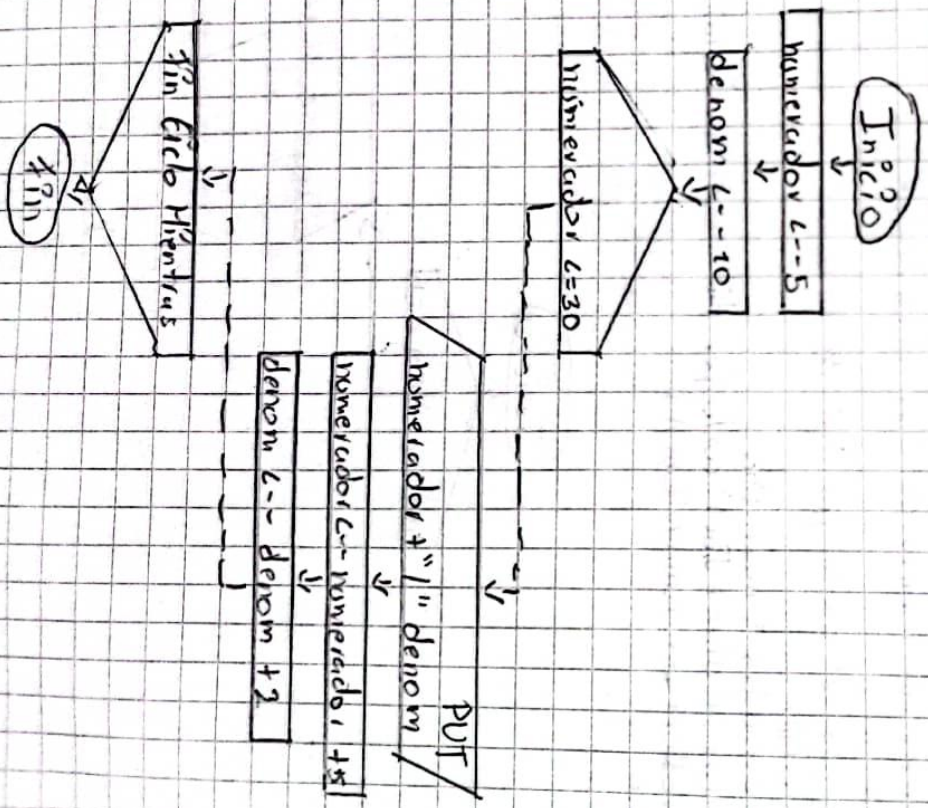 Inicio
numerador <-- 5
denom <-- 10
numerador <= 30
PUT
numerador + "/" denom
numerador <-- numerador + 5
denom <-- denom + 2
Fin Ciclo Mientras
Fin